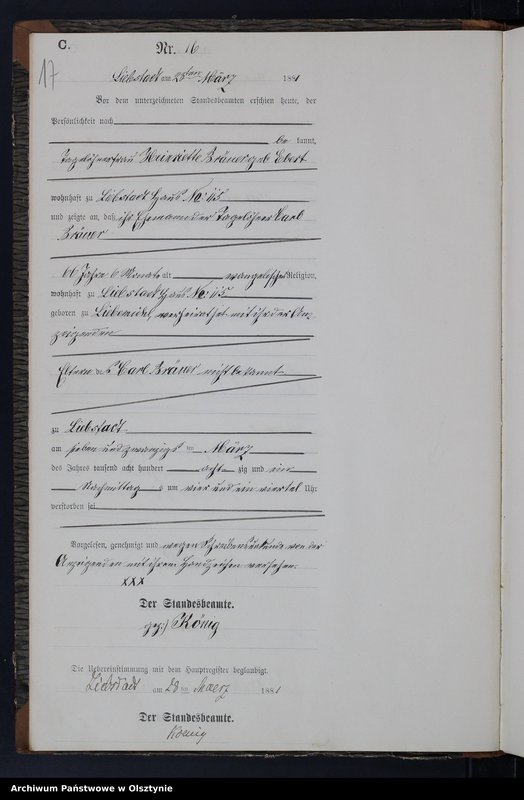 C.
Nr. 16
17
Liebstadt am 28ten März 1881
Vor dem unterzeichneten Standesbeamten erschien heute, der
Persönlichkeit nach
be kannt,
Tagelöhnerfrau Henriette Bräuer geb Ebert
wohnhaft zu Liebstadt Haus No: 115
und zeigte an, daß ihr Ehemann der Tagelöhner Carl
Bräuer
66 Jahre 6 Monate alt evangelischer Religion,
wohnhaft zu Liebstadt Haus No: 115
geboren zu verheirathet mit ihr der An-
zeigenden
Eltern des Carl Bräuer nicht bekannt
zu Liebstadt
am sieben und zwanzigst en März
des Jahres tausend acht hundert acht zig und ein
Nachmittags um vier und ein viertel Uhr
verstorben sei
Vorgelesen, genehmigt und wegen von der
Anzeigenden mit ihrem Handzeichen versehen.
XXX
Der Standesbeamte.
gez:) König
Die Uebereinstimmung mit dem Hauptregister beglaubigt.
Liebstadt am 28 ten Maerz 1881
Der Standesbeamte.
Koenig
Archiwum Państwowe w Olsztynie